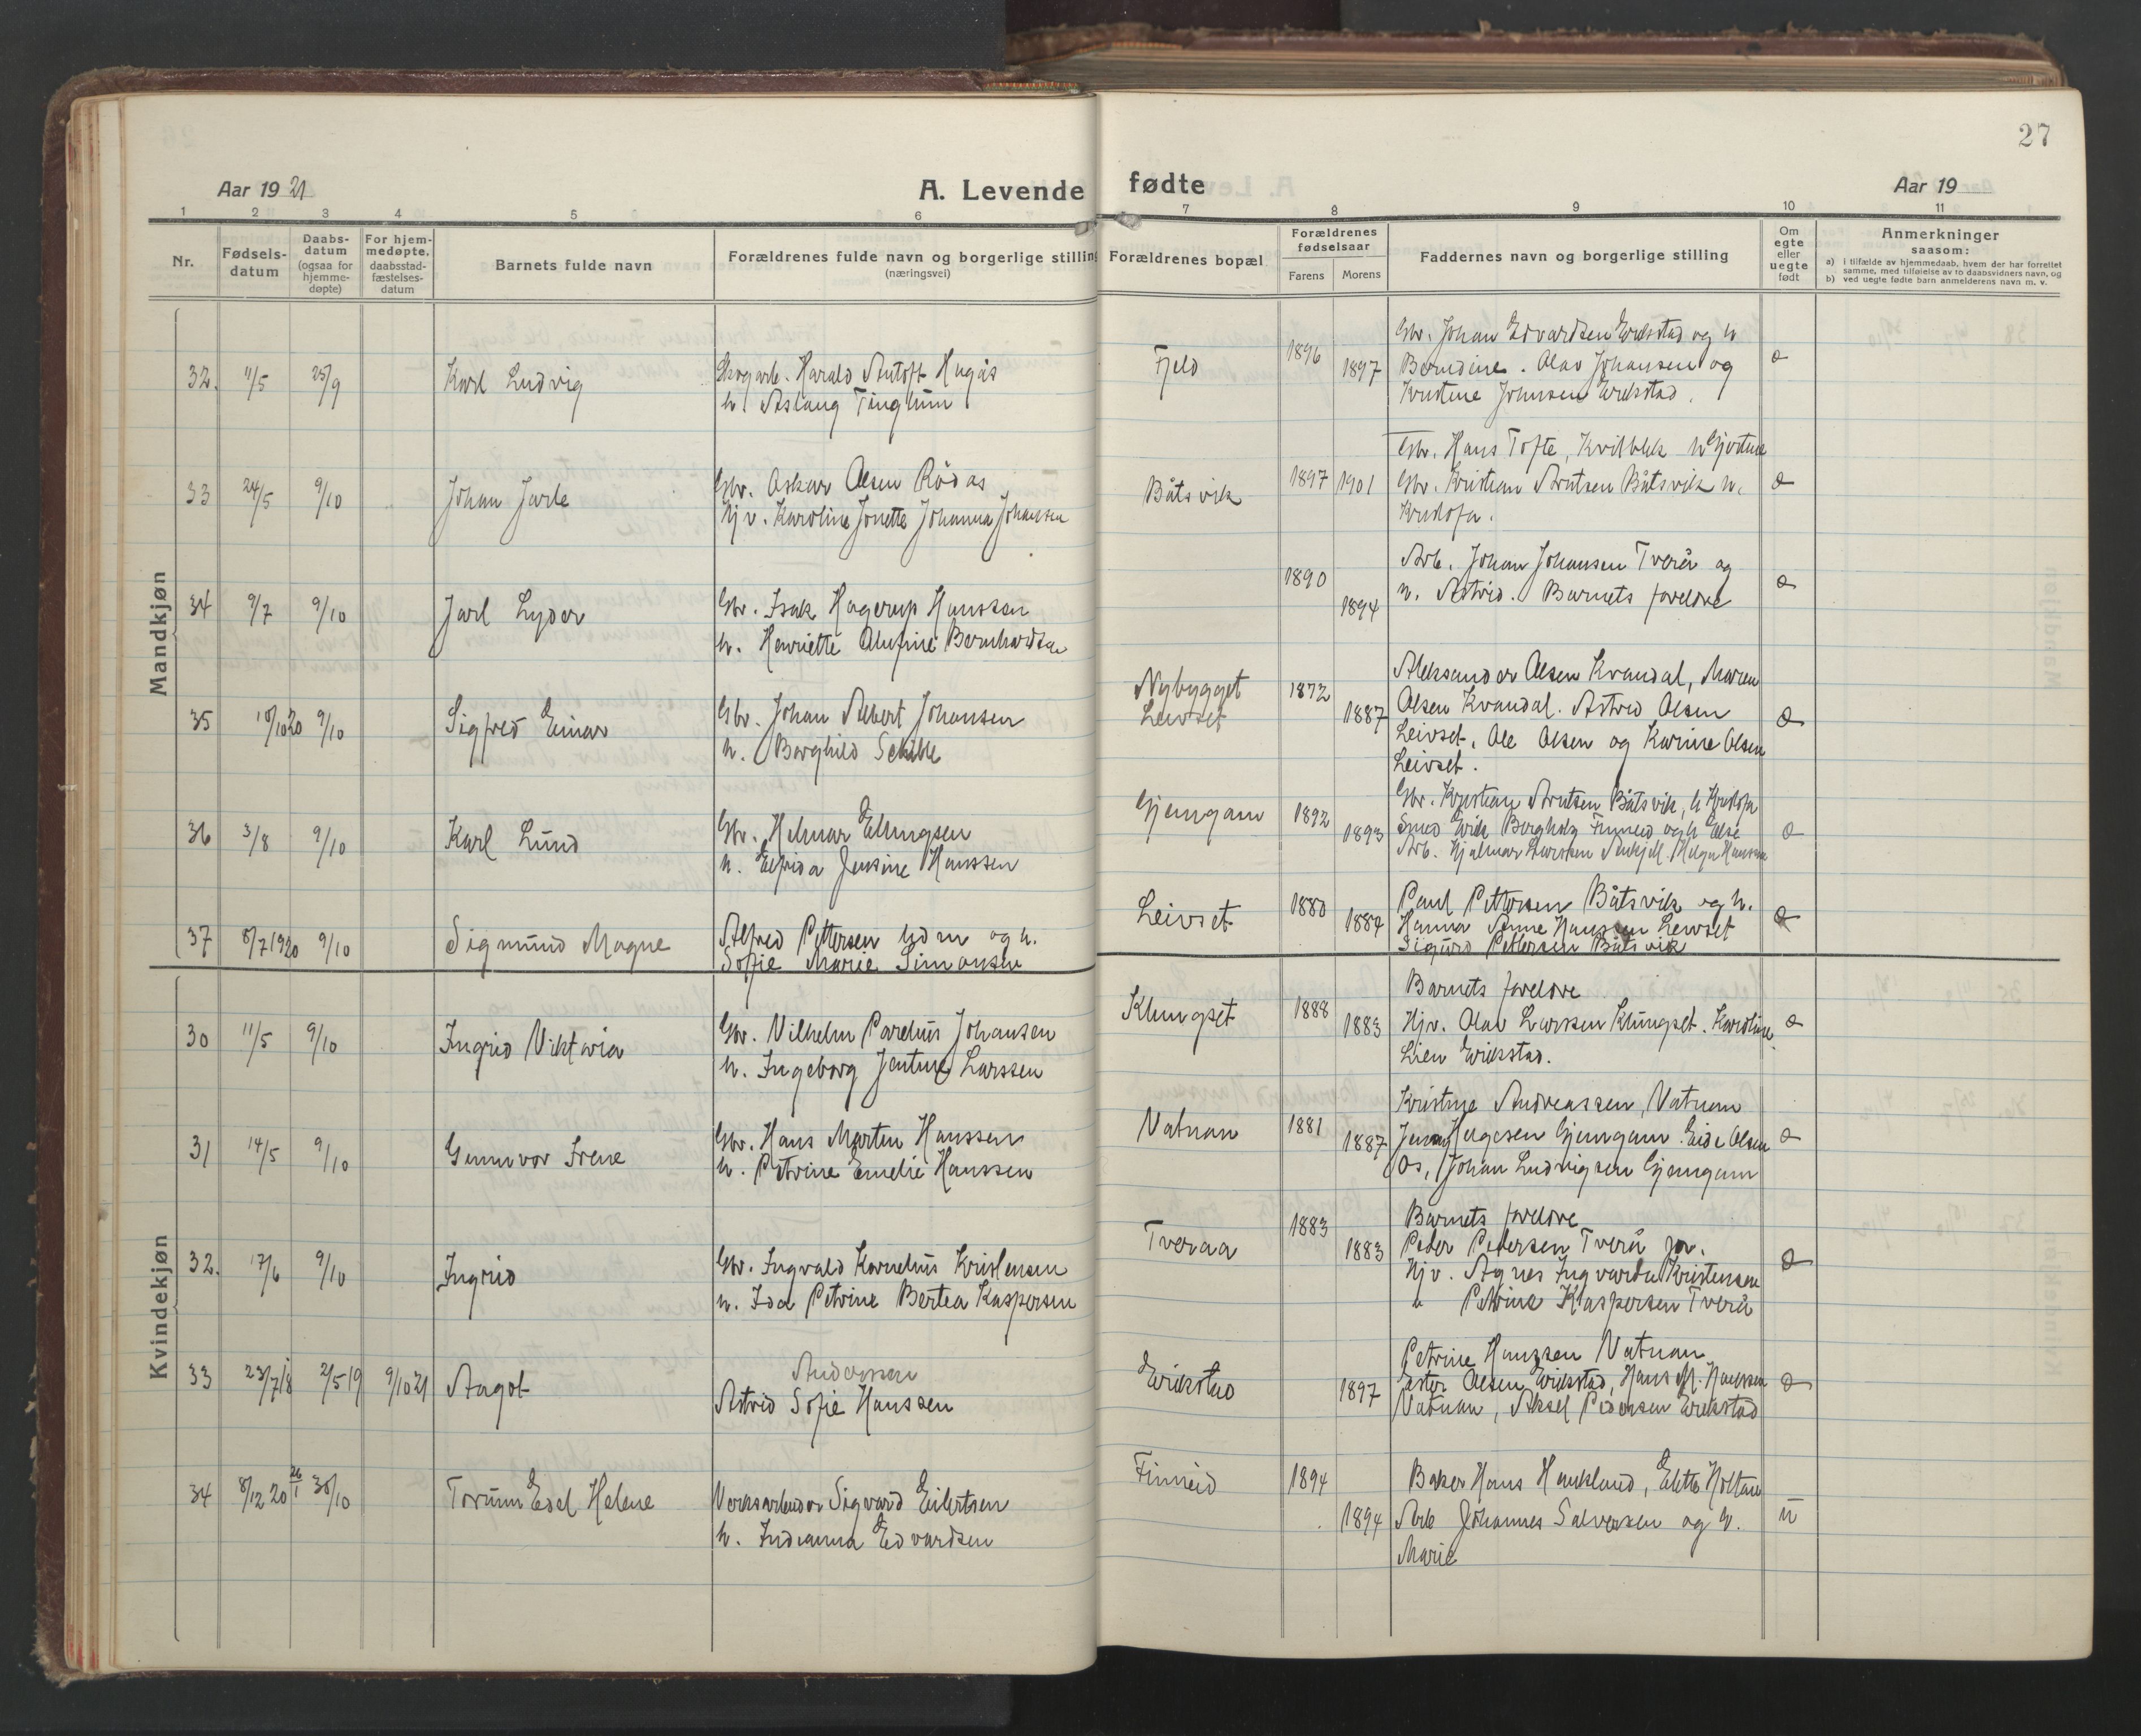 27
Aar 19 21
A. Levende fødte
Aar 19
1 2 3 4 5 6 7 8 9 10 11
Nr.
Fødsels-
datum
Daabs-
datum
(ogsaa for
hjemme-
døpte)
For hjem-
medøpte,
daabsstad-
fæstelses-
datum
Barnets fulde navn
Forældrenes fulde navn og borgerlige stilling
(næringsvei)
Forældrenes bopæl
Forældrenes
fødselsaar
Farens Morens
Faddernes navn og borgerlige stilling
Om
egte
eller
uegte
født
Anmerkninger
saasom:
a) i tilfælde av hjemmedaab, hvem der har forrettet
samme, med tilføielse av to daabsvidners navn, og
b) ved uegte fødte barn anmelderens navn m. v.
Mandkjøn
32. 11/5 25/9 Karl Ludvig
Skogarb. Harald Antoft Hugås
h. Aslaug Tinghun
Fjeld 1896 1897
Gbr. Johan Edvardsen Erikstad og h
Berndine. Olav Johansen og
Kristine Johnsen Erikstad.
e
33 24/5 9/10 Johan Jarle
Gbr. Oskar Olsen Rödås
Hjv. Karoline Jonette Johanna Johansen
Båtsvik 1897 1901
Gbr. Hans Tofte, Kvilblik h Gjertine
Gbr. Kristian Arntsen Båtsvik h.
Kristofa.
e
34 9/7 9/10 Jarl Lyder
Gbr. Isak Hagerup Hanssen
h. Henriette Olufine Bernhardsen
1890 1894
Arb. Johan Johansen Tverå og
h. Astrid. Barnets foreldre
e
35 10/1020 9/10 Sigfred Einar
Gbr. Johan Albert Johansen
h. Borghild Schille
Nybygget
Leivset
1872 1887
Aleksander Olsen Kvandal, Maren
Olsen Kvandal. Astrid Olsen
Leivset, Ole Olsen og Karine Olsen
Leivset.
e
36 3/8 9/10 Karl Lund
Gbr. Helmar Ellingsen
h. Elfrida Jensine Hanssen
Gjemgam 1892 1893
Gbr. Kristian Arntsen Båtsvik, h Kristofa
Smed Erik Borghaug Finneid og h Else
Arb. Hjalmar Larssen Helga Hanssen
e
37 8/7 1920 9/10 Sigmund Magne
Alfred Pettersen og h.
Sofie Marie Simonsen
Leivset 1880 1884
Paul Pettersen Båtsvik og h.
Hanna Anne Hanssen Leivset
Sigurd Pettersen Båtsvik
e
Kvindekjøn
30 11/5 9/10 Ingrid Viktoria
Gbr. Vilhelm Parelius Johansen
h. Ingeborg Jentine Larssen
Klungset 1888 1883
Barnets foreldre
Hjv. Olav Larssen Klungset. Karoline
Lien Erikstad.
e
31 14/5 9/10 Gunnvor Irene
Gbr. Hans Martin Hanssen
h. Petrine Emelie Hanssen
Vatnan 1881 1887
Kristine Andreassen, Vatnan
Jenny Helgesen Gjemgam. Eide Olsen
Os, Johan Ludvigsen Gjemgam
e
32. 17/6 9/10 Ingrid
Gbr. Ingvald Kornelius Kristensen
h. Ida Petrine Bertea Kaspersen
Tveraa 1883 1883
Barnets foreldre
Peder Pedersen Tverå jr.
Hjv. Agnes Ingvarda Kristensen
" Petrine Kaspersen Tverå
e
33 23/7 18 2/5 19 9/10 21 Aagot
Anderssen
Astrid Sofie Hanssen
Erikstad 1897
Petrine Hanssen Vatnan
Ester Olsen Erikstad, Hans M. Hanssen
Vatnan, Aksel Pedersen Erikstad
e
34 8/12 20 26/1 30/10 Torunn Edel Helene
Verksarbeider Sigvard Eilertsen
h. Indianna Edvardsen
Finneid 1894 1894
Baker Hans Haukland, Elette Holtan
Arb Johannes Salvesen og h.
Marie
u